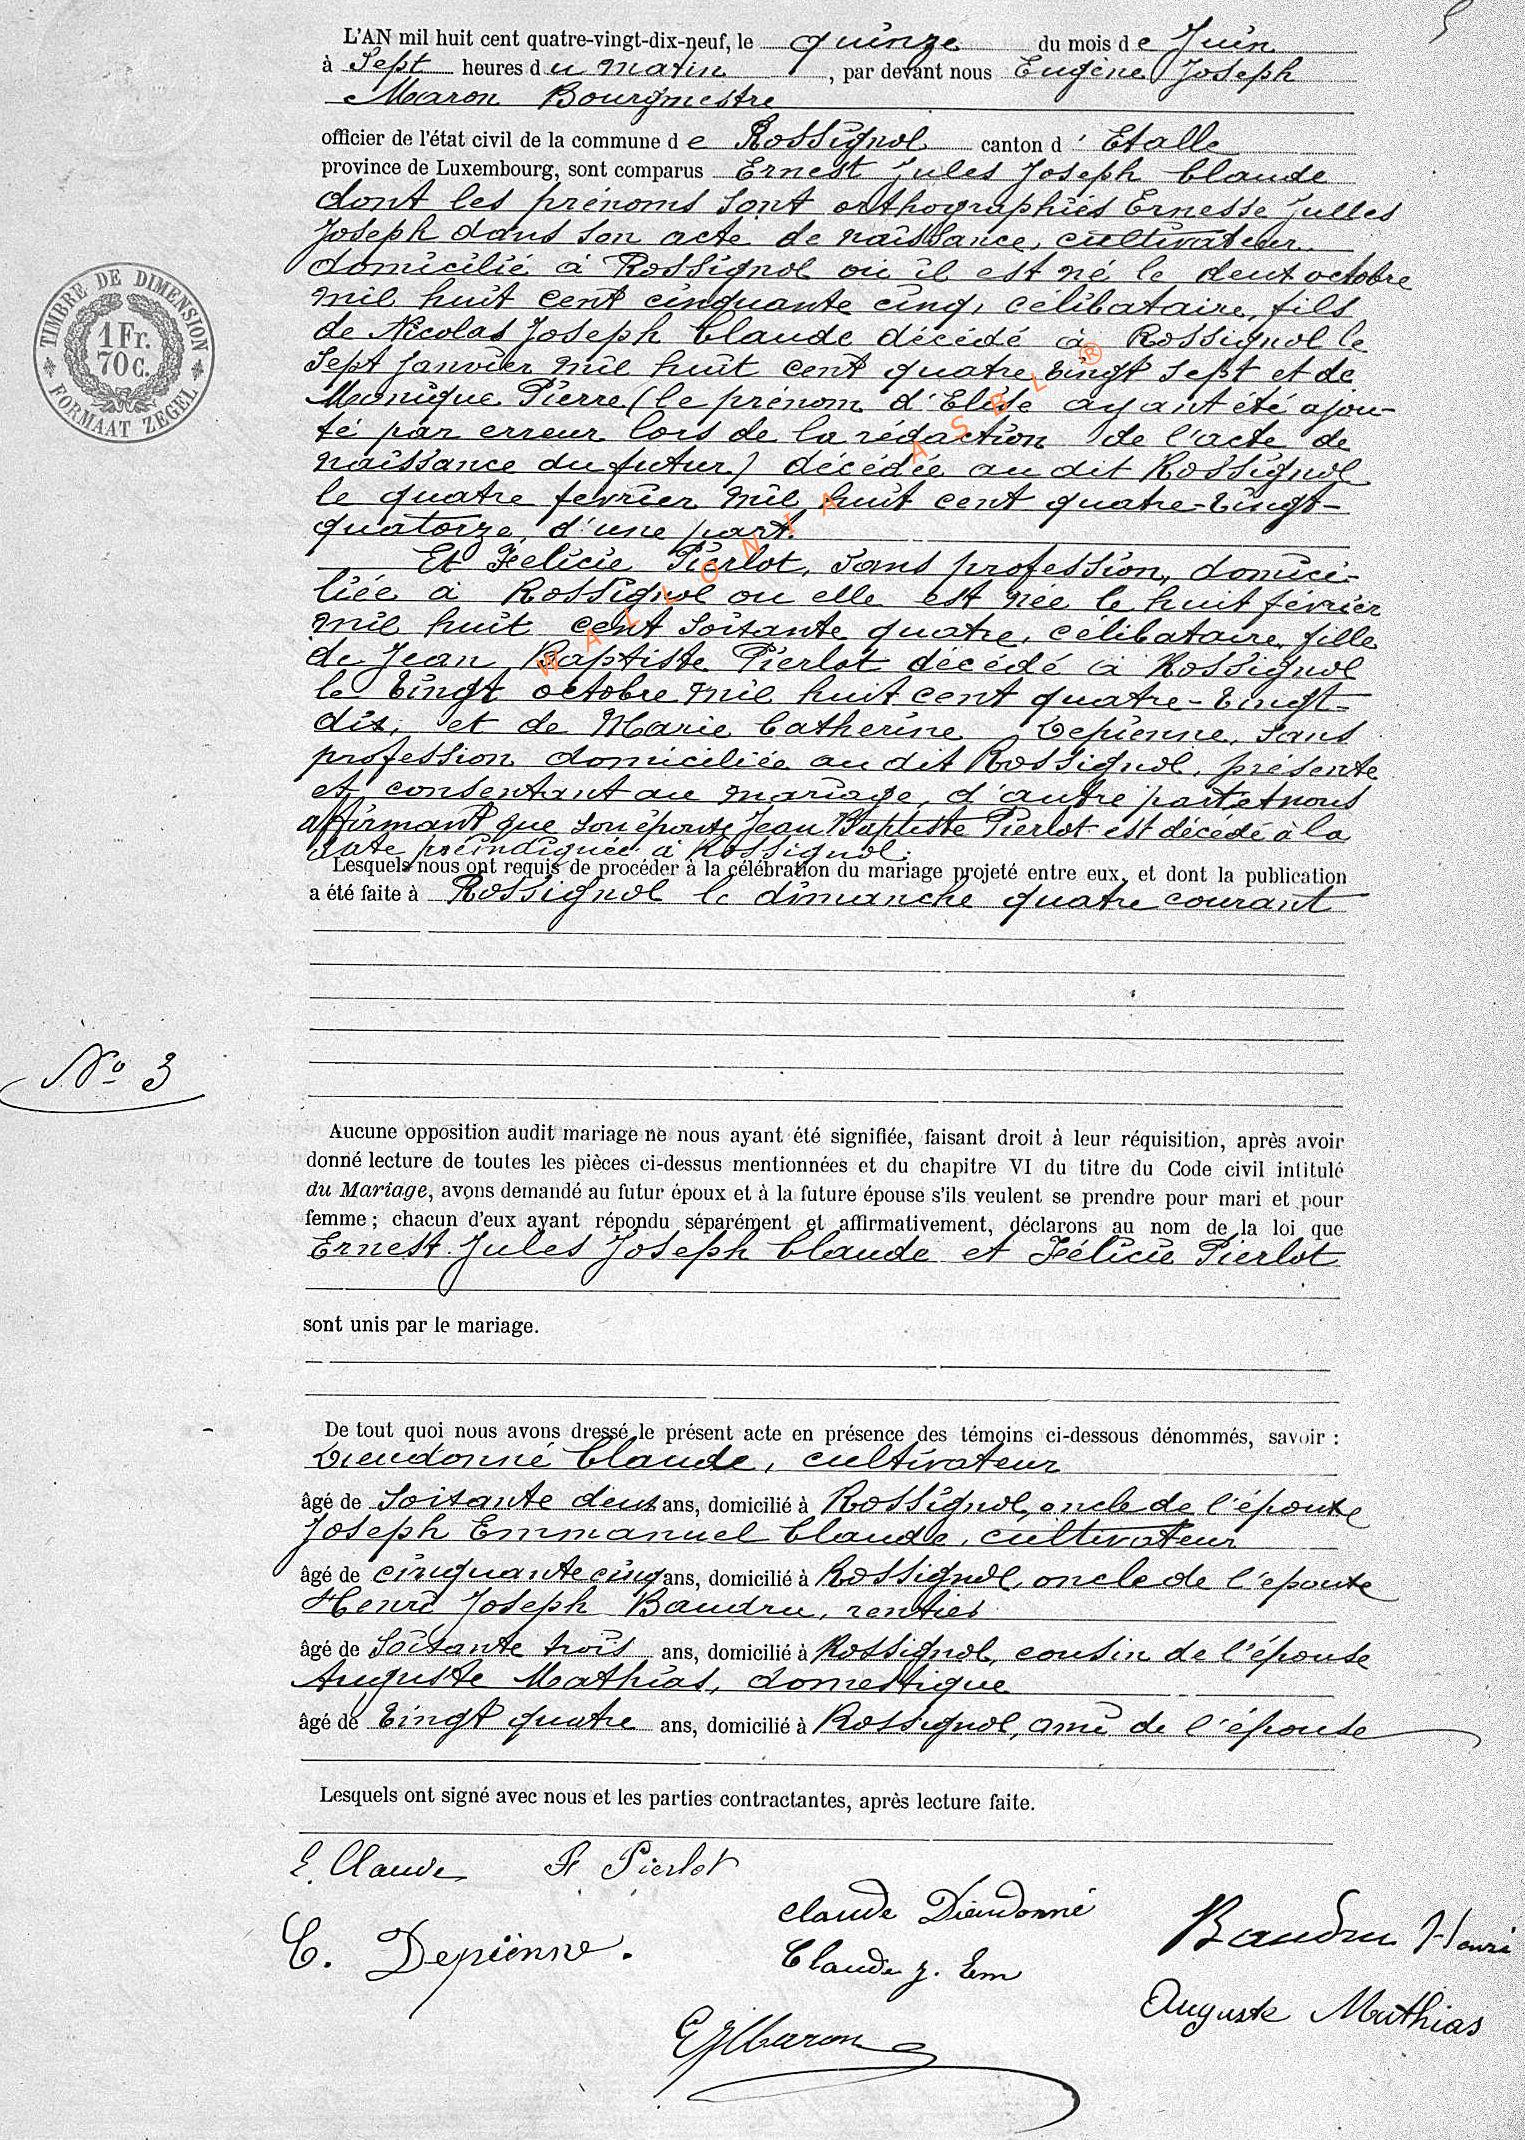 5
L'AN mil huit cent quatre-vingt-dix-neuf, le quinze du mois de Juin
à Sept heures du matin, par devant nous Eugène Joseph
Maron Bourgmestre
officier de l'état civil de la commune de Rossignol canton d'Etalle
province de Luxembourg, sont comparus Ernest Jules Joseph Claude
dont les prénoms sont orthographiés Ernesse Julles
Joseph dans son acte de naissance, cultivateur
domicilié à Rossignol où il est né le deux octobre
mil huit cent cinquante cinq, célibataire, fils
de Nicolas Joseph Claude décédé à Rossignol le
Sept Janvier mil huit cent quatre vingt sept et de
Monique Pierre (le prénom d'Elise ayant été ajou-
té par erreur lors de la rédaction de l'acte de
naissance du futur) décédée au dit Rossignol
le quatre février mil huit cent quatre-vingt-
quatorze, d'une part.
Et Félicie Pierlot, sans profession, domici-
liée à Rossignol ou elle est née le huit février
mil huit cent soixante quatre, célibataire, fille
de Jean Baptiste Pierlot décédé à Rossignol
le vingt octobre mil huit cent quatre-vingt-
dix, et de Marie Catherine Depienne, sans
profession domiciliée au dit Rossignol, présente
et consentant au mariage, d'autre part et nous
affirmant que son époux Jean Baptiste Pierlot est décédé à la
date préindiquée à Rossignol.
Lesquels nous ont requis de procéder à la célébration du mariage projeté entre eux, et dont la publication
a été faite à Rossignol le dimanche quatre courant
TIMBRE DE DIMENSION
1 Fr.
70 C.
FORMAAT ZEGEL
WALLONIA ASBL ®
N° 3
Aucune opposition audit mariage ne nous ayant été signifiée, faisant droit à leur réquisition, après avoir
donné lecture de toutes les pièces ci-dessus mentionnées et du chapitre VI du titre du Code civil intitulé
du Mariage, avons demandé au futur époux et à la future épouse s'ils veulent se prendre pour mari et pour
femme ; chacun d'eux ayant répondu séparément et affirmativement, déclarons au nom de la loi que
Ernest Jules Joseph Claude et Félicie Pierlot
sont unis par le mariage.
De tout quoi nous avons dressé le présent acte en présence des témoins ci-dessous dénommés, savoir :
Dieudonné Claude, cultivateur
âgé de soixante deux ans, domicilié à Rossignol, oncle de l'époux
Joseph Emmanuel Claude, cultivateur
âgé de cinquante cinq ans, domicilié à Rossignol, oncle de l'epoux
Henri Joseph Baudru, rentier
âgé de soixante trois ans, domicilié à Rossignol, cousin de l'épouse
Auguste Mathias, domestique
âgé de vingt quatre ans, domicilié à Rossignol, ami de l'épouse
Lesquels ont signé avec nous et les parties contractantes, après lecture faite.
E. Claude F Pierlot
Claude Dieudonné
Baudru Henri
C. Depienne.
Claude J. Em
Auguste Mathias
EJMaron